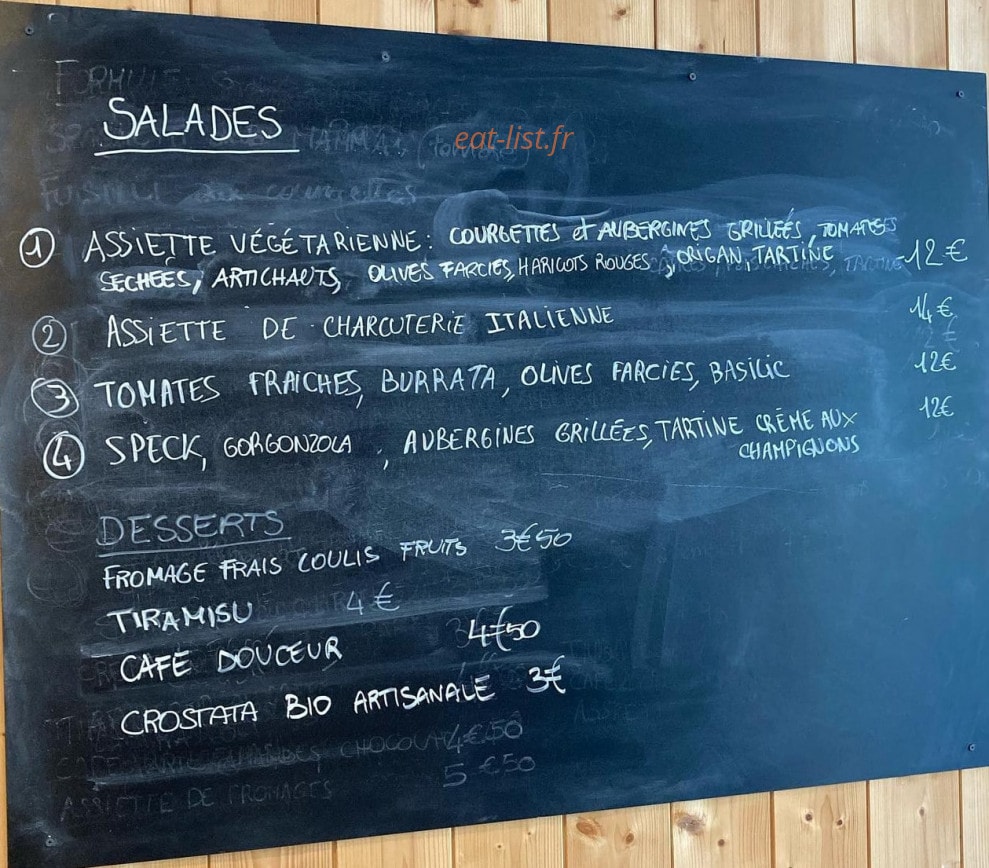 FORMULE
SALADES
eat-list.fr
FUSILLI aux courgettes
1 ASSIETTE VÉGÉTARIENNE: COURGETTES et AUBERGINES GRILLÉES, TOMATES
SECHÉES, ARTICHAUTS, OLIVES FARCIES, HARICOTS ROUGES, ORIGAN, TARTINE 12€
2 ASSIETTE DE CHARCUTERIE ITALIENNE 14€
3 TOMATES FRAICHES, BURRATA, OLIVES FARCIES, BASILIC 12€
4 SPECK, GORGONZOLA, AUBERGINES GRILLÉES, TARTINE CRÈME AUX 12€
CHAMPIGNONS
DESSERTS
FROMAGE FRAIS COULIS FRUITS 3€50
TIRAMISU 4€
CAFE DOUCEUR 4€50
CROSTATA BIO ARTISANALE 3€
CHOCOLAT 4€50
ASSIETTE DE FROMAGES 5€50